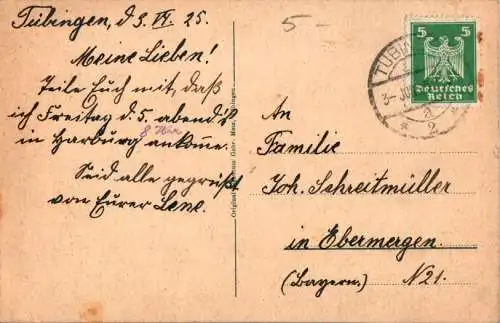 Tübingen, d. 3. VI. 25.
Meine Lieben!
Teile Euch mit, daß
ich Freitag d. 5. abends
8 Uhr
in Harburg ankomme.
Seid alle gegrüßt
von Eurer Lene.
5-
An
Familie
Joh. Schreitmüller
in Ebermergen.
(Bayern.) N 21.
5 5
Deutsches
Reich
TÜBI
3. JU
* 2 *